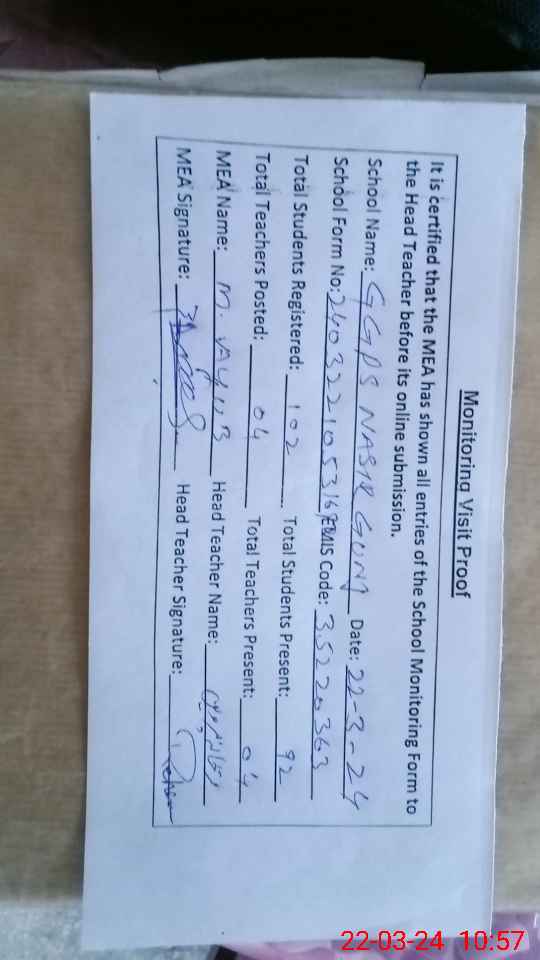 Monitoring Visit Proof
It is certified that the MEA has shown all entries of the School Monitoring Form to
the Head Teacher before its online submission.
School Name: GGPS NASIR GUNJ Date: 22-3-24
School Form No: EMIS Code: 35220363
Total Students Registered: 102 Total Students Present: 92
Total Teachers Posted: 04 Total Teachers Present: 04
MEA Name: M. AYUB Head Teacher Name:
MEA Signature: Head Teacher Signature:
22-03-24 10:57